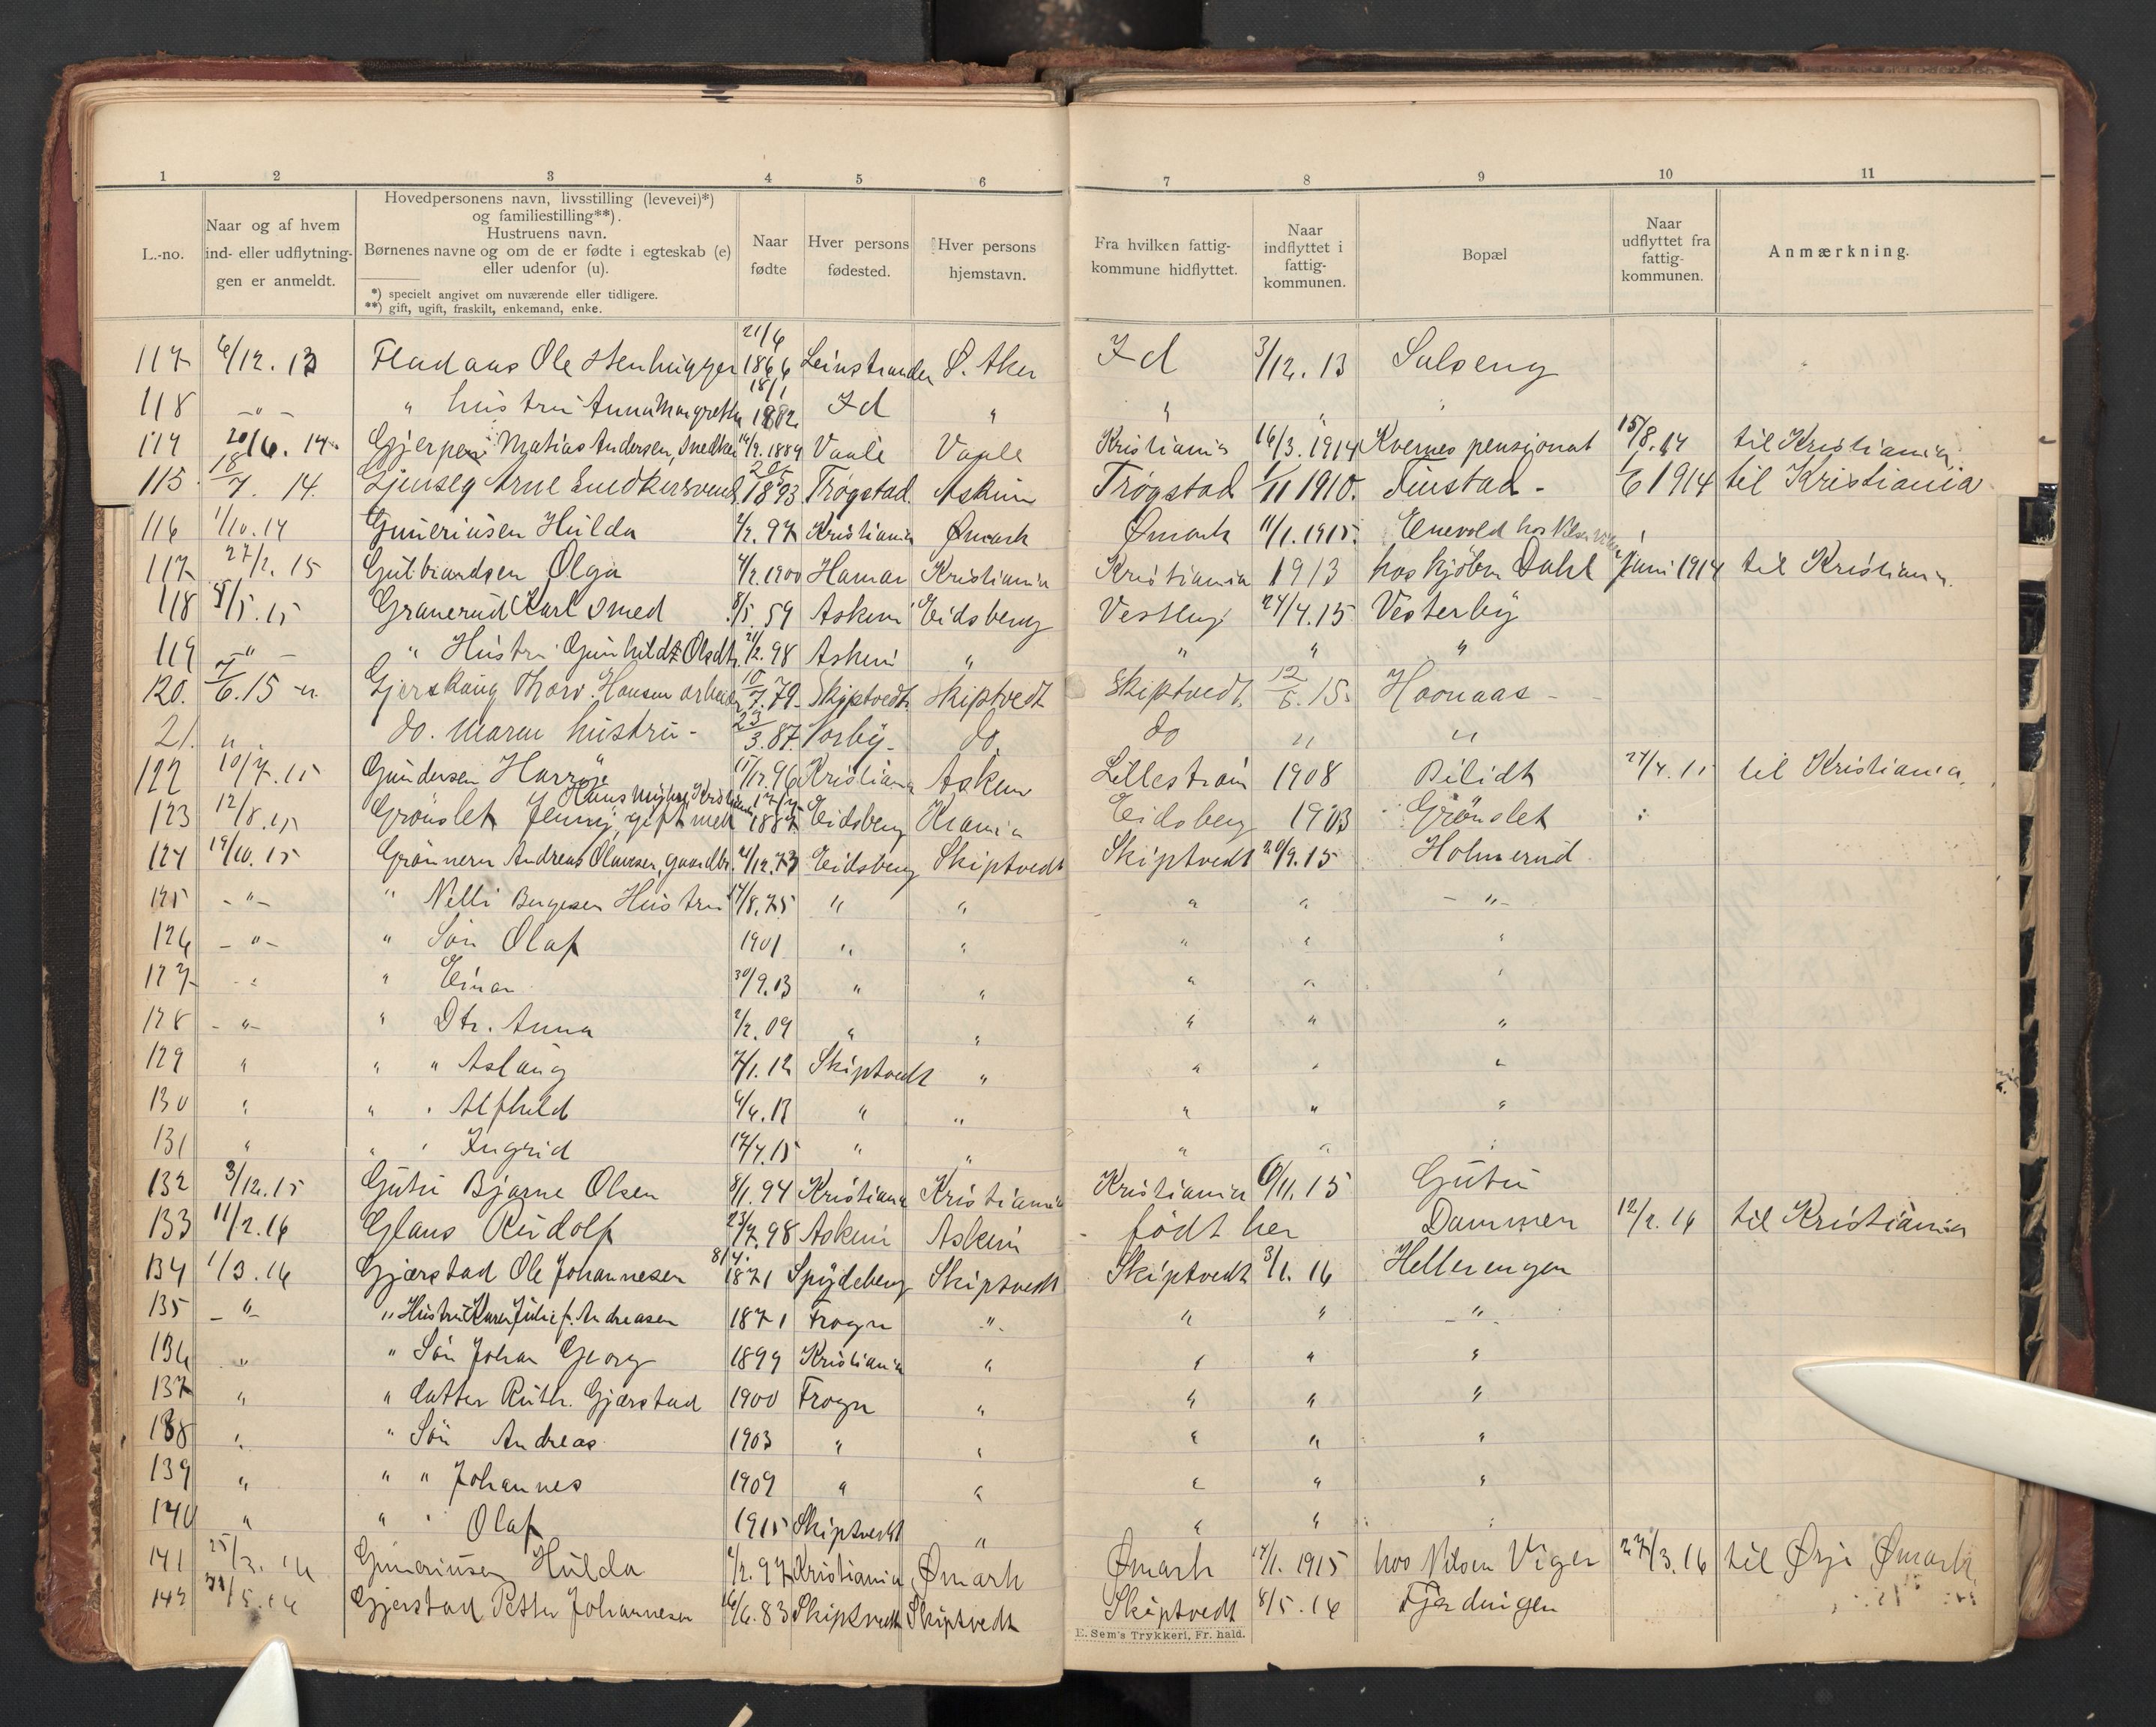 1 2 3 4 5 6 7 8 9 10 11
L.-no.
Naar og af hvem
ind- eller udflytnin-
gen er anmeldt.
Hovedpersonens navn, livsstilling (levevei)*)
og familiestilling**).
Hustruens navn.
Børnenes navne og om de er fødte i egteskab (e)
eller udenfor (u).
*) specielt angivet om nuværende eller tidligere.
**) gift, ugift, fraskilt, enkemand, enke.
Naar
fødte
Hver persons
fødested.
Hver persons
hjemstavn.
Fra hvilken fattig-
kommune hidflyttet.
Naar
indflyttet i
fattig-
kommunen.
Bopæl
Naar
udflyttet fra
fattig-
kommunen.
Anmærkning.
117 6/12.13 Fladaas Ole Stenhugger 21/6 1866 Leinstranden Ø. Aker Id 3/12.13 Solseng
118 -"- " hustru Anna Margrethe 18/1 1882 Id " " " "
114 20/6.14 Gjerpen Matias Andersen, Snedker 14/2.1889 Vaale Vaale Kristiania 16/3.1914 Kvernes pensionat 15/8.14 til Kristiania
115 18/7.14. Arne Snedkersvend 1893 Trøgstad Askim Trøgstad 1/11 1910. Finstad - 1/6 1914 til Kristiania
116 1/10.14 Guneriusen Hulda 2/2.97 Kristiania Ømark Ømark 11/1.1915. Enevold hos Nilsen
117 27/2.15 Gulbrandsen Olga 4/2.1900 Hamar Kristiania Kristiania 1913 hos kjøbm Dahl Juni 1914 til Kristiania
118 8/5.15 Granerud Karl Smed 8/5.59 Askim Eidsberg Vestby 24/4.15 Vesterby
119 -"- " Hustru Gunhild Olsdtr. 21/2.98 Askim " " " "
120. 7/6.15 -"- Gjerskaug Thorv. Hansen arbeid 10/7.79 Skiptvedt Skiptvedt Skiptvedt 12/5.15. Haanaas -
21. " do. Maren hustru - 23/3.87. Vorby - do. do " "
122 10/7.15 Gundersen Harry 15/12.96 Kristiania Askim Lillestrøm 1908 Bilidt 24/4.15 til Kristiania
123 12/8.15 Grønslet Jenny, gift med Hans 1887 Eidsberg Krania Eidsberg 1903 Grønslet
124 19/10.15 Grønnern Andreas Olavesen, gaardbr. 2/12.73 Eidsberg Skiptvedt Skiptvedt 20/9.15 Holmerud
125 -"- " Nelli Bergesen Hustru 17/8.75 " " " " -"-
126 -"- " Søn Olaf 1901 " " " " "
127 " " Einar 30/9.03 " " " " "
128 -"- " Dtr. Anna 2/2.09 " " " " "
129 " " " Aslaug 7/1.12 Skiptvedt " " " "
130 " " " Alfhild 4/4.13 " " " " "
131 " " " Ingrid 17/4.15 " " " " "
132 3/12.15 Gutu Bjarne Olsen 8/1.94 Kristiania Kristiania Kristiania 6/11.15 Gutu
133 11/2.16 Glans Rudolf 23/7.98 Askim Askim født her Dammen 12/2.16 til Kristiania
134 1/3.16 Gjærstad Ole Johannesen 8/4. 1871 Spydeberg Skiptvedt Skiptvedt 3/1.16 Hellerengen
135 -"- " Hustru Karen Julie f. Andreasen 1871 Frogn " " " "
136 " " Søn Johan Georg 1899 Kristiania " " " "
137 " " datter Ruth. Gjærstad 1900 Frogn " " " "
138 " " Søn Andreas 1903 " " " " "
139 " " " Johannes 1909 " " " " "
140 " " " Olaf 1915 Skiptvedt " " " "
141 25/3.16 Guneriusen Hulda 2/2.97 Kristiania Ømark Ømark 14/1.1915 hos Nilsen Viger 27/3.16 til Ørje Ømark
142 31/5.16 Gjerstad Petter Johannesen 16/6.83 Skiptvedt Skiptvedt Skiptvedt 8/5.16 Fjerdingen
E. Sem's Trykkeri, Fr. hald.